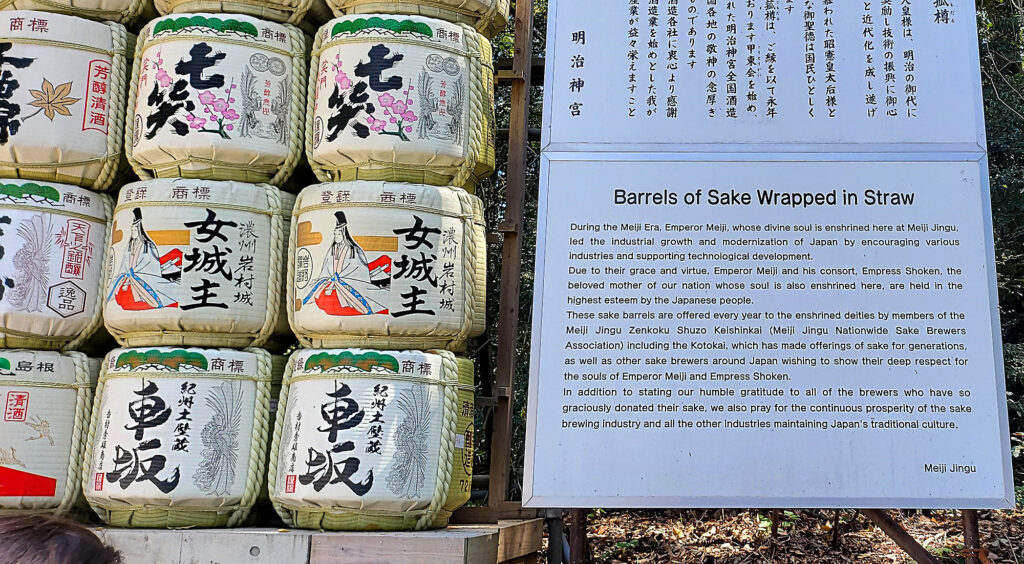 商標
芳醇清酒
登録 商標
七笑
登録 商標
七笑
商標
天狗
逸品
登録 商標
女城主
濃州岩村城
登録 商標
女城主
濃州岩村城
島根
清酒
商標
紀州土蔵
車坂
商標
紀州土蔵
車坂
人皇様は、明治の御代に
奨励し技術の振興に御心
と近代化を成し遂げ
られた昭憲皇太后様と
な御聖徳は国民ひとしく
ます
菰樽は、ご縁を以て永年
おります甲東会を始め、
れた明治神宮全国酒造
国各地の敬神の念厚き
ものであります
酒造各社に衷心より感謝
酒造業を始めとした我が
産業が益々栄えますこと
明治神宮
Barrels of Sake Wrapped in Straw
During the Meiji Era, Emperor Meiji, whose divine soul is enshrined here at Meiji Jingu,
led the industrial growth and modernization of Japan by encouraging various
industries and supporting technological development.
Due to their grace and virtue, Emperor Meiji and his consort, Empress Shoken, the
beloved mother of our nation whose soul is also enshrined here, are held in the
highest esteem by the Japanese people.
These sake barrels are offered every year to the enshrined deities by members of the
Meiji Jingu Zenkoku Shuzo Keishinkai (Meiji Jingu Nationwide Sake Brewers
Association) including the Kotokai, which has made offerings of sake for generations,
as well as other sake brewers around Japan wishing to show their deep respect for
the souls of Emperor Meiji and Empress Shoken.
In addition to stating our humble gratitude to all of the brewers who have so
graciously donated their sake, we also pray for the continuous prosperity of the sake
brewing industry and all the other industries maintaining Japan's traditional culture.
Meiji Jingu